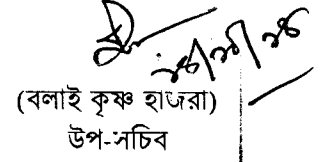 (বলাই কৃষ্ণ হাজরা)
উপ-সচিব